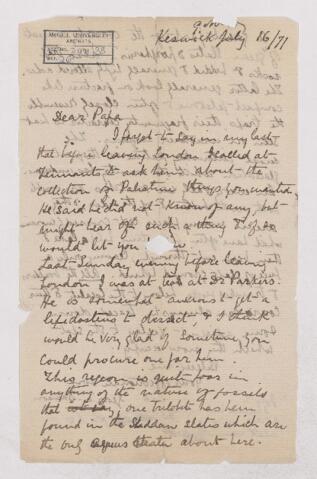 McGILL UNIVERSITY
ARCHIVES
ACC. NO.
REF.
Keswick July 16/71
Dear Papa
I forgot to say in my last
that before leaving London I called at
to ask him about the
collection of Palestine things you wanted.
He said he did not know of any, but
might hear of such a thing & if so
would let you know
Last Sunday evening before leaving
London I was at tea at Dr Parkers.
He is somewhat anxious to get a
lepidosteus to dissect, & I think
would be very glad if sometime you
could procure one for him.
This region is quite poor in
anything of the nature of fossils
that one trilobite has been
found in the Skiddaw slates which are
the only aqueous strata about here.